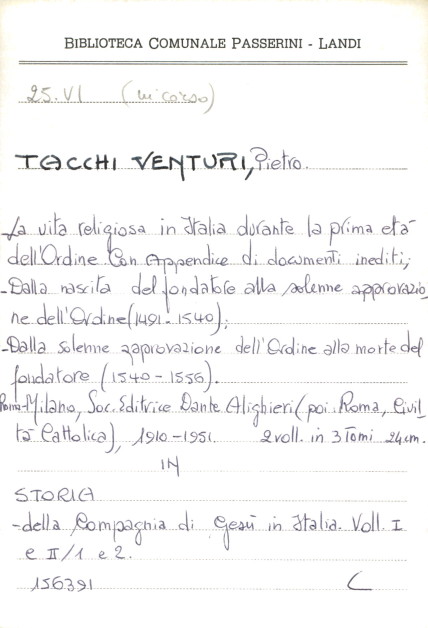 BIBLIOTECA COMUNALE PASSERINI - LANDI
25.VI (in corso)
TACCHI VENTURI, Pietro.
-La vita religiosa in Italia durante la prima età
dell'Ordine Con Appendice di documenti inediti;
-Dalla nascita del fondatore alla solenne approvazio
ne dell'Ordine (1491-1540);
-Dalla solenne approvazione dell'Ordine alla morte del
fondatore (1540-1556).
Roma-Milano, Soc. Editrice Dante Alighieri (poi Roma, Civil_
tà Cattolica), 1910-1951. 2 voll. in 3 Tomi 24 cm.
IN
STORIA
-della Compagnia di Gesù in Italia. Voll. I
e II/1 e 2.
156391 C